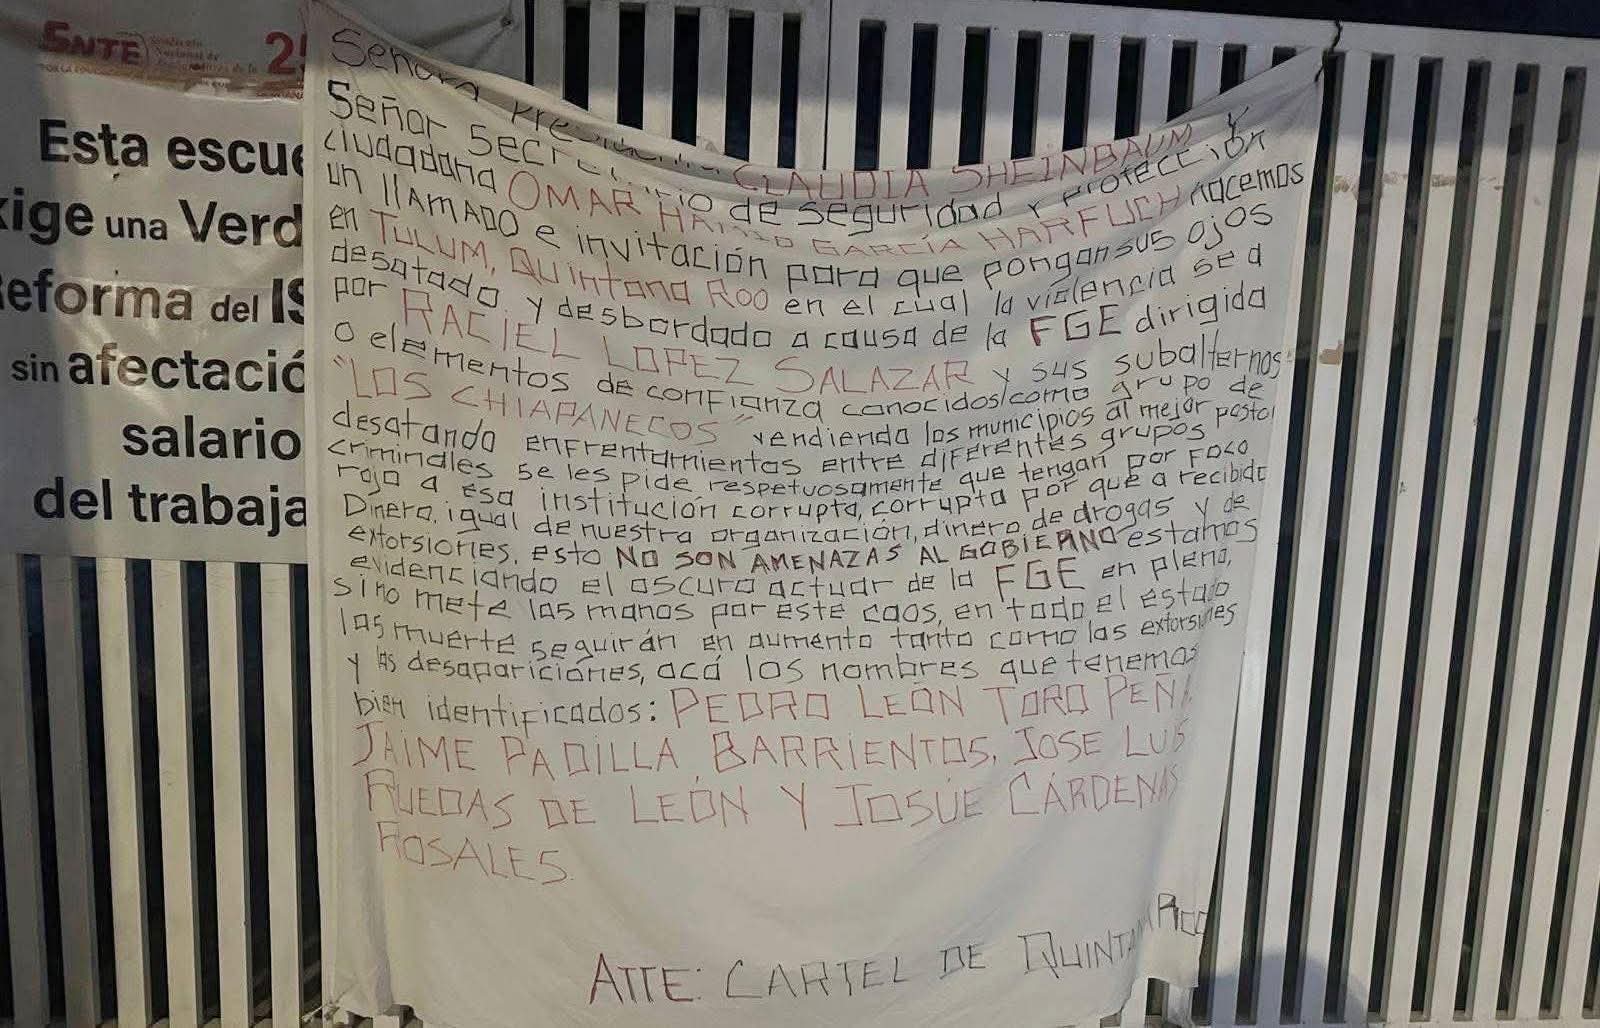 SNTE
Sindicato
Nacional de
Esta escue
xige una Verd
Reforma del IS
sin afectació
salario
del trabaja
Señora Presidenta CLAUDIA SHEINBAUM Y
Señor Secretario de seguridad y protección
ciudadana OMAR HAMID GARCÍA HARFUCH hacemos
un llAMADO e invitación para que pongan sus ojos
en TULUM, QUINTANA ROO en el cual la violencia se a
desatado y desbordado a causa de la FGE dirigida
por RACIEL LOPEZ SALAZAR y sus subalternos
o elementos de confianza conocidos como grupo de
"LOS CHIAPANECOS" vendiendo los municipios al mejor postor
desatando enfrentamientos entre diferentes grupos
criminales se les pide respetuosamente que tengan por FOCO
rojo a esa institución corrupta, corrupta por que a recibido
Dinero, igual de nuestra organización, dinero de drogas y de
extorsiones. esto NO SON AMENAZAS AL GOBIERNO estamos
evidenciando el oscuro actuar de la FGE en pleno,
si no mete las manos por este caos, en todo el estado
las muerte seguirán en aumento tanto como las extorsiones
y las desapariciones, acá los nombres que tenemos
bien identificados: PEDRO LEÓN TORO PEÑA,
JAIME PADILLA BARRIENTOS, JOSE LUIS
RUEDAS DE LEÓN Y JOSÚE CÁRDENAS
ROSALES.
ATTE: CARTEL DE QUINTANA ROO